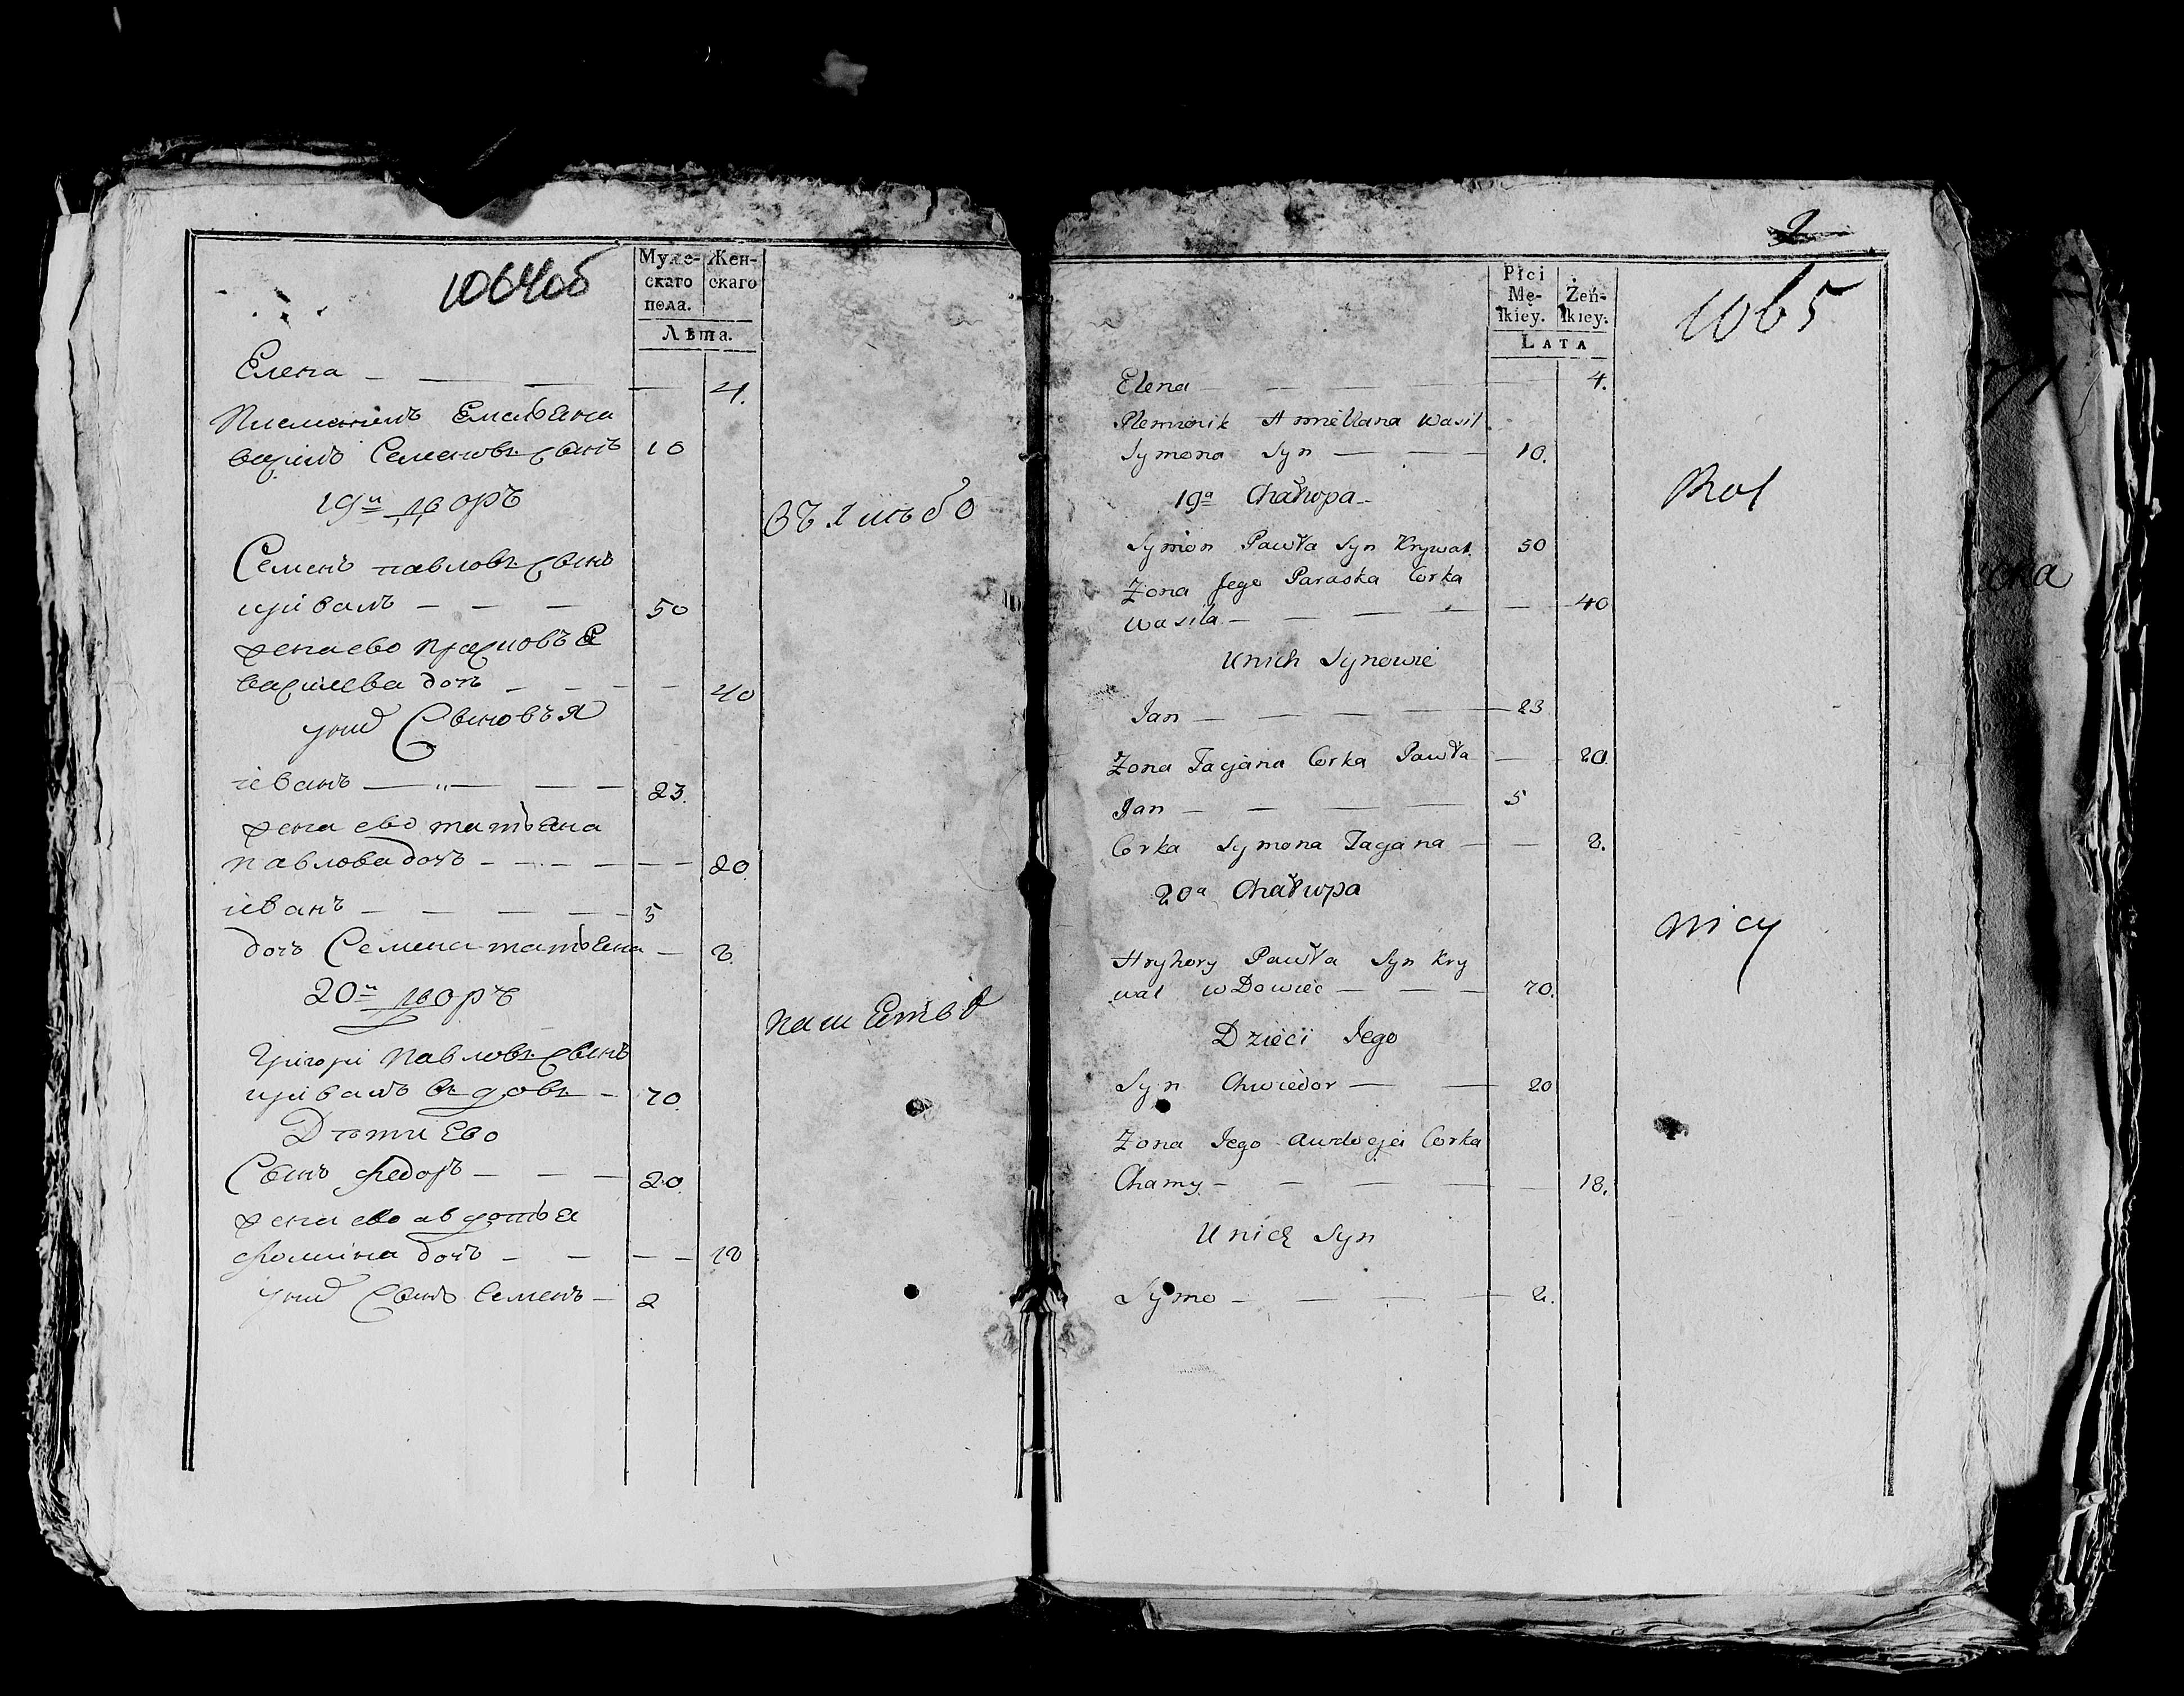 1064об
Муже-
скаго
пола.
Жен-
скаго
Лѣта.
Елена — — — — 4.
Племяникъ Емельяна
василь Семеновъ сынъ 10
19й дворъ
Семенъ павловъ сынъ
криваль — — — 50
жена ево прасковья
васильева дочь — — — — 40
у них Сыновья
іванъ — — — — 23.
жена ево татьяна
павлова дочь — — — — — 20.
іванъ — — — — 5
дочь Семена татьяна — 8.
20й дворъ
Григорі павловъ сынъ
криваль вдовъ — 70.
Дѣти Ево
Сынъ федоръ — — — 20.
жена ево авдотья
фомина дочь — — — — 18
у них Сынъ Семенъ — 2
2
1065
Płci
Mę-
ſkiey.
Żeń-
ſkiey.
LATA
Elena — — — — 4.
Plemienik Amelkana Wasil
Symona Syn — — — 10.
19a Chałupa —
Symon Pawła Syn Krywal. 50
Zona Jego Paraska Corka
Wasila — — — — — 40
Unich Synowie
Jan — — — — 23
Zona Tacjana Corka Pawła — 20.
Jan — — — — 5
Corka Symona Tacjana — — 8.
20a Chałupa
Hryhory Pawła Syn Kry
wal wDowiec — — — 70.
Dzieci Jego
Syn Chwiedor — — 20
Zona Jego Awdocja Corka
Chamy — — — — — 18.
Unich Syn
Symo — — — — 2.